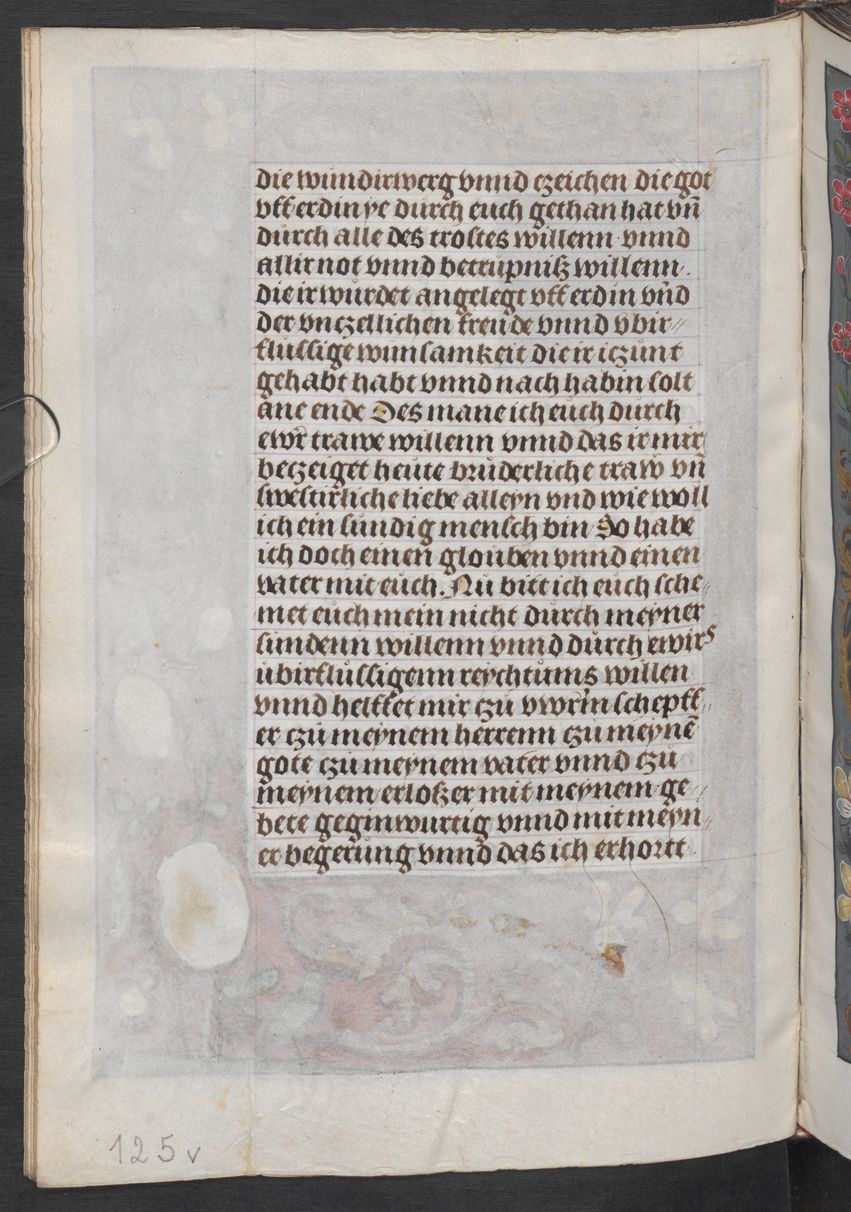 die wundirwerg vnnd czeichen die got
vff erdin ye durch euch gethan hat vn̄
durch alle des trostes willenn vnnd
allir not vnnd betrupniß willenn.
die ir wurdet angelegt vff erdin vn̄d
der vnczellichen freude vnnd vbir⸗
flussige wunsamkeit die ir iczunt
gehabt habt vnnd nach habin solt
ane ende Des mane ich euch durch
ewr̄ trawe willenn vnnd das ir mir
beczeiget heute bruderliche traw vn̄
swestirliche liebe alleyn vnd wie woll
ich ein sundig mensch bin So habe
ich doch einen glouben vnnd einen
vater mit euch. Nu bitt ich euch sche⸗
met euch mein nicht durch meyner
sundenn willenn vnnd durch ewirs
ubirflussigenn reychtums willen
vnnd helffet mir czu vwrm schepff⸗
er czu meynem herrenn czu meynē
gote czu meynem vater vnnd czu
meynem erloßer mit meynem ge⸗
bete geginwurtig vnnd mit meyn⸗
er begerung vnnd das ich erhortt
125v